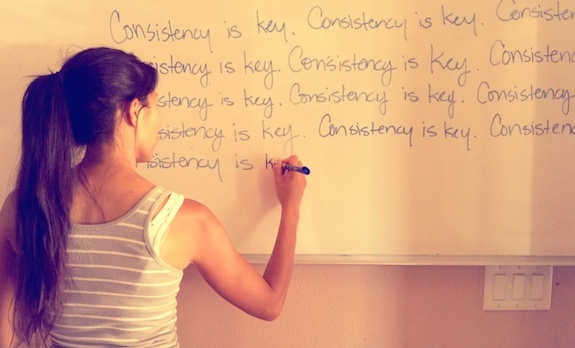 Consistency is key. Consistency is key. Consisten
sistency is key. Consistency is key. Consistenc
stency is key. Consistency is key. Consistency
sistency is key. Consistency is key. Consisten
nsistency is k